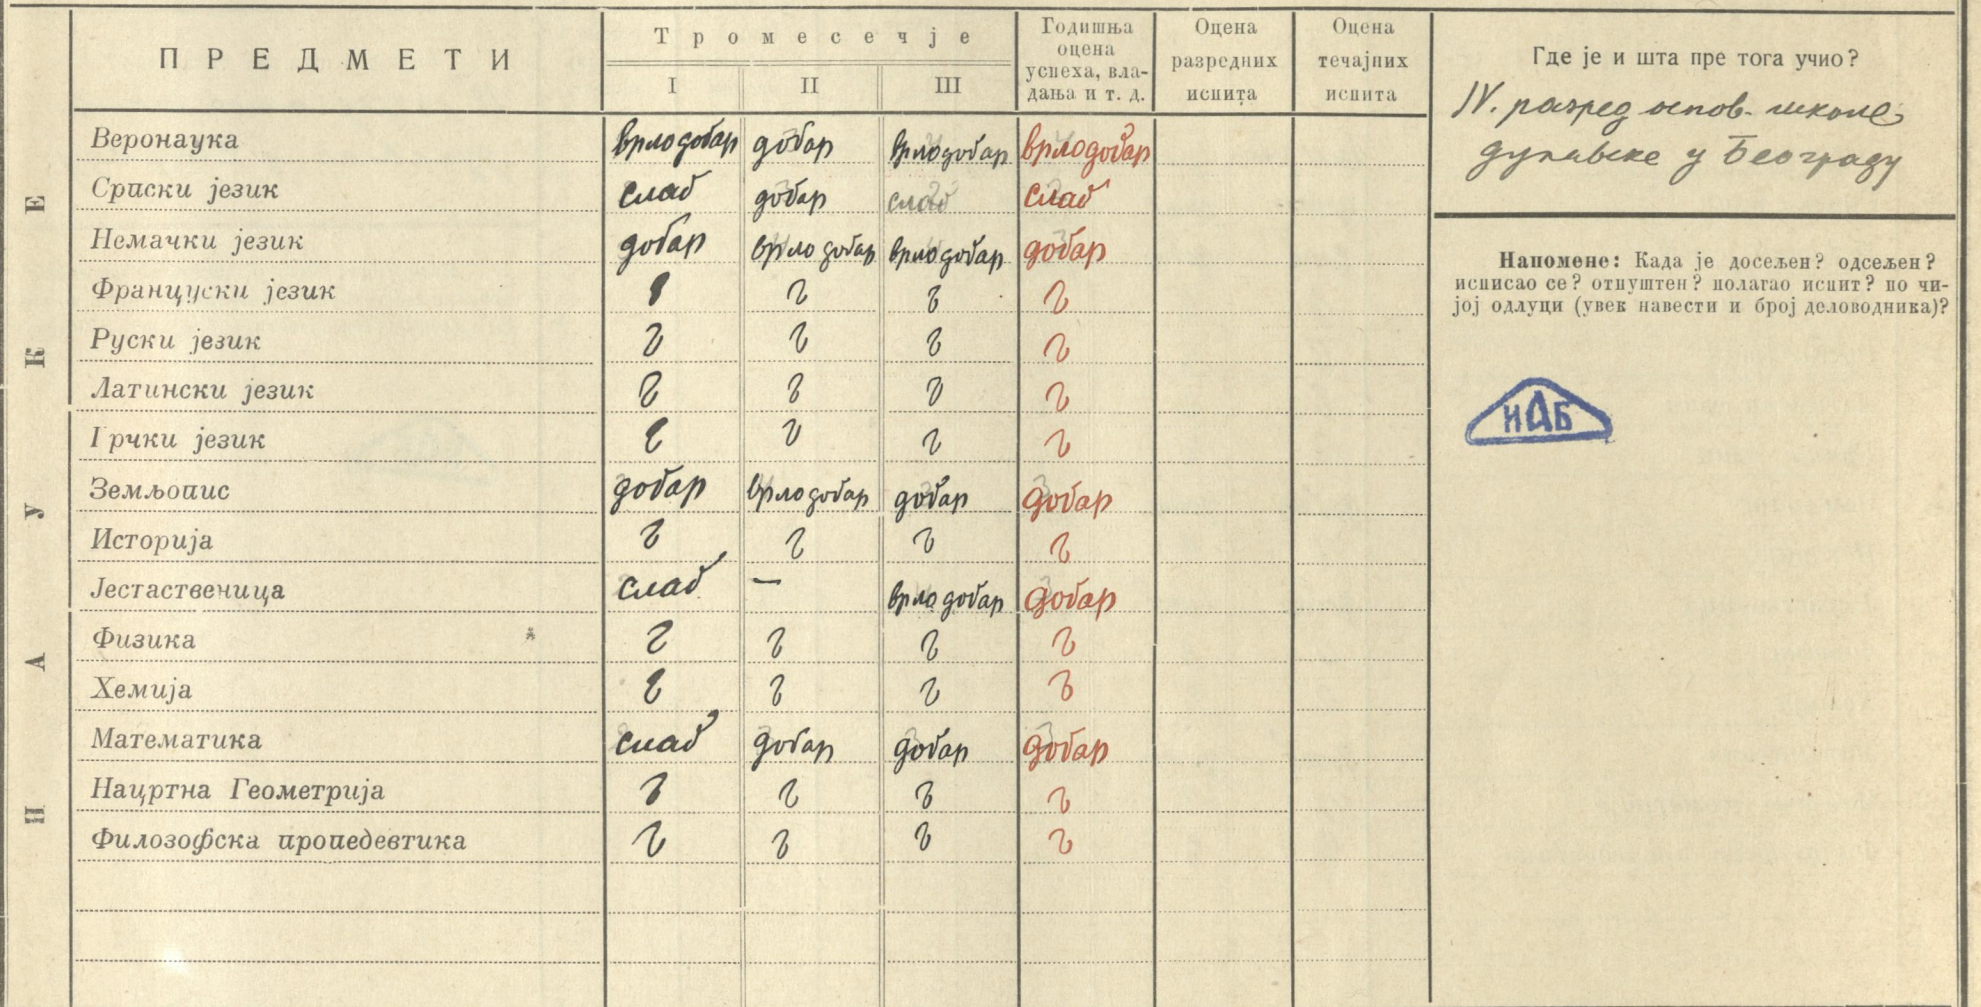 НАУКЕ
ПРЕДМЕТИ
Тромесечје
I II III
Годишња оцена успеха, владања и т. д.
Оцена разредних испита
Оцена течајних испита
Веронаука врло добар добар врло добар врло добар
Српски језик слаб добар слаб слаб
Немачки језик добар врло добар врло добар добар
Француски језик
Руски језик
Латински језик
Грчки језик
Земљопис добар врло добар добар добар
Историја
Јестаственица слаб — врло добар добар
Физика
Хемија
Математика слаб добар добар добар
Нацртна Геометрија
Филозофска пропедевтика
Где је и шта пре тога учио?
IV. разред основ. школе
дунавске у Београду
Напомене: Када је досељен? одсељен?
исписао се? отпуштен? полагао испит? по чи-
јој одлуци (увек навести и број деловодника)?
ИАБ